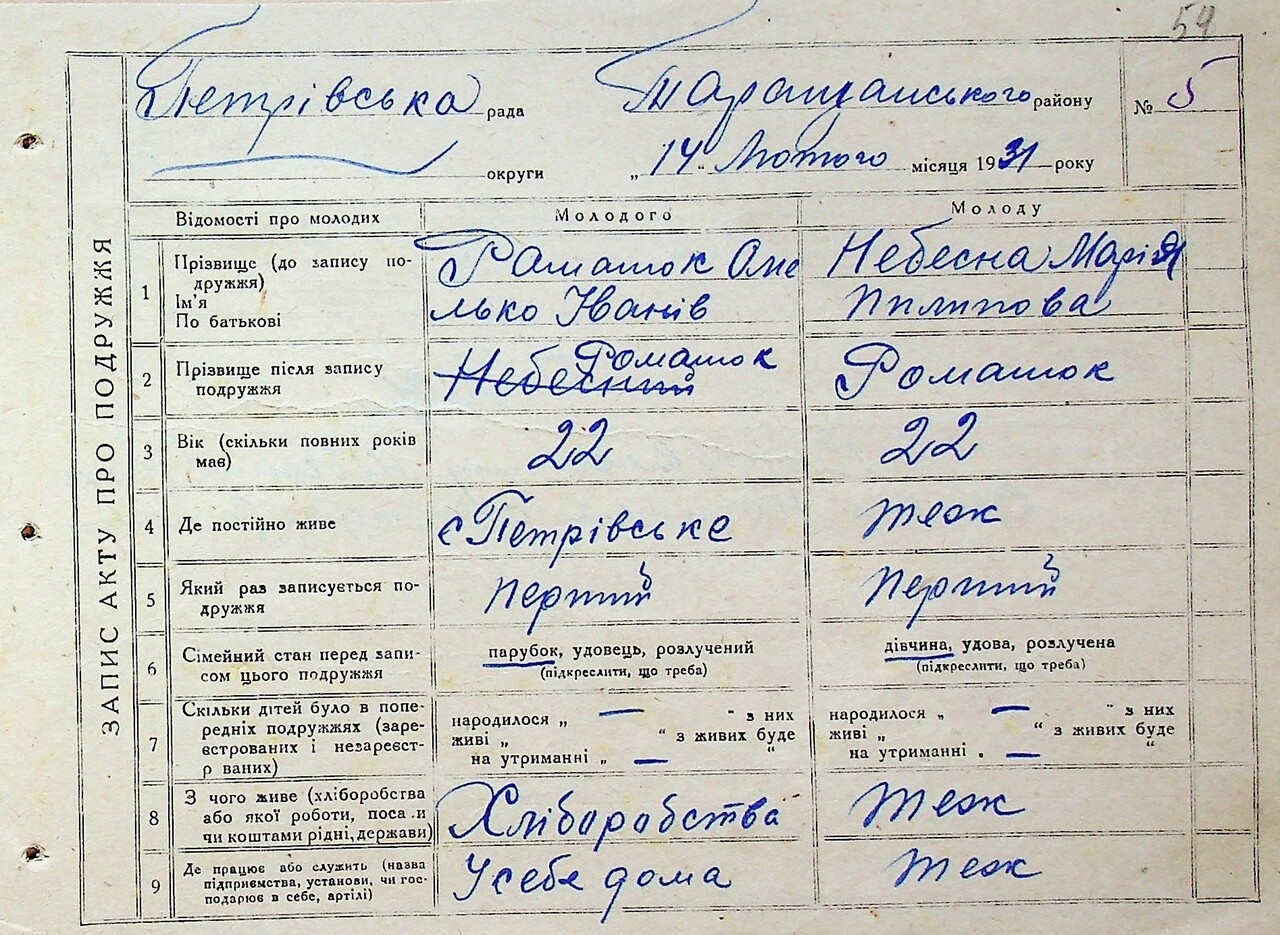 54
Петрівська рада Таращанського району № 5
округи „14“ Лютого місяця 1931 року
ЗАПИС АКТУ ПРО ПОДРУЖЖЯ
Відомості про молодих Молодого Молоду
1 Прізвище (до запису подружжя) Ім'я По батькові
Ромашок Оме
лько Іванів
Небесна Марія
Пилипова
2 Прізвище після запису
подружжя
Небесний Ромашок
Ромашок
3 Вік (скільки повних років
має)
22
22
4 Де постійно живе
с Петрівське
теж
5 Який раз записується по-
дружжя
перший
перший
6 Сімейний стан перед запи-
сом цього подружжя
парубок, удовець, розлучений
(підкреслити, що треба)
дівчина, удова, розлучена
(підкреслити, що треба)
7 Скільки дітей було в попе-
редніх подружжях (заре-
єстрованих і незареєст-
р ваних)
народилося „ — “ з них
живі „ “ з живих буде
на утриманні „ — “
народилося „ — “ з них
живі „ “ з живих буде
на утриманні „ — “
8 З чого живе (хліборобства
або якої роботи, поса и
чи коштами рідні, держави)
Хліборобства
теж
9 Де працює або служить (назва
підприємства, установи, чи гос-
подарює в себе, артілі)
У себе дома
теж